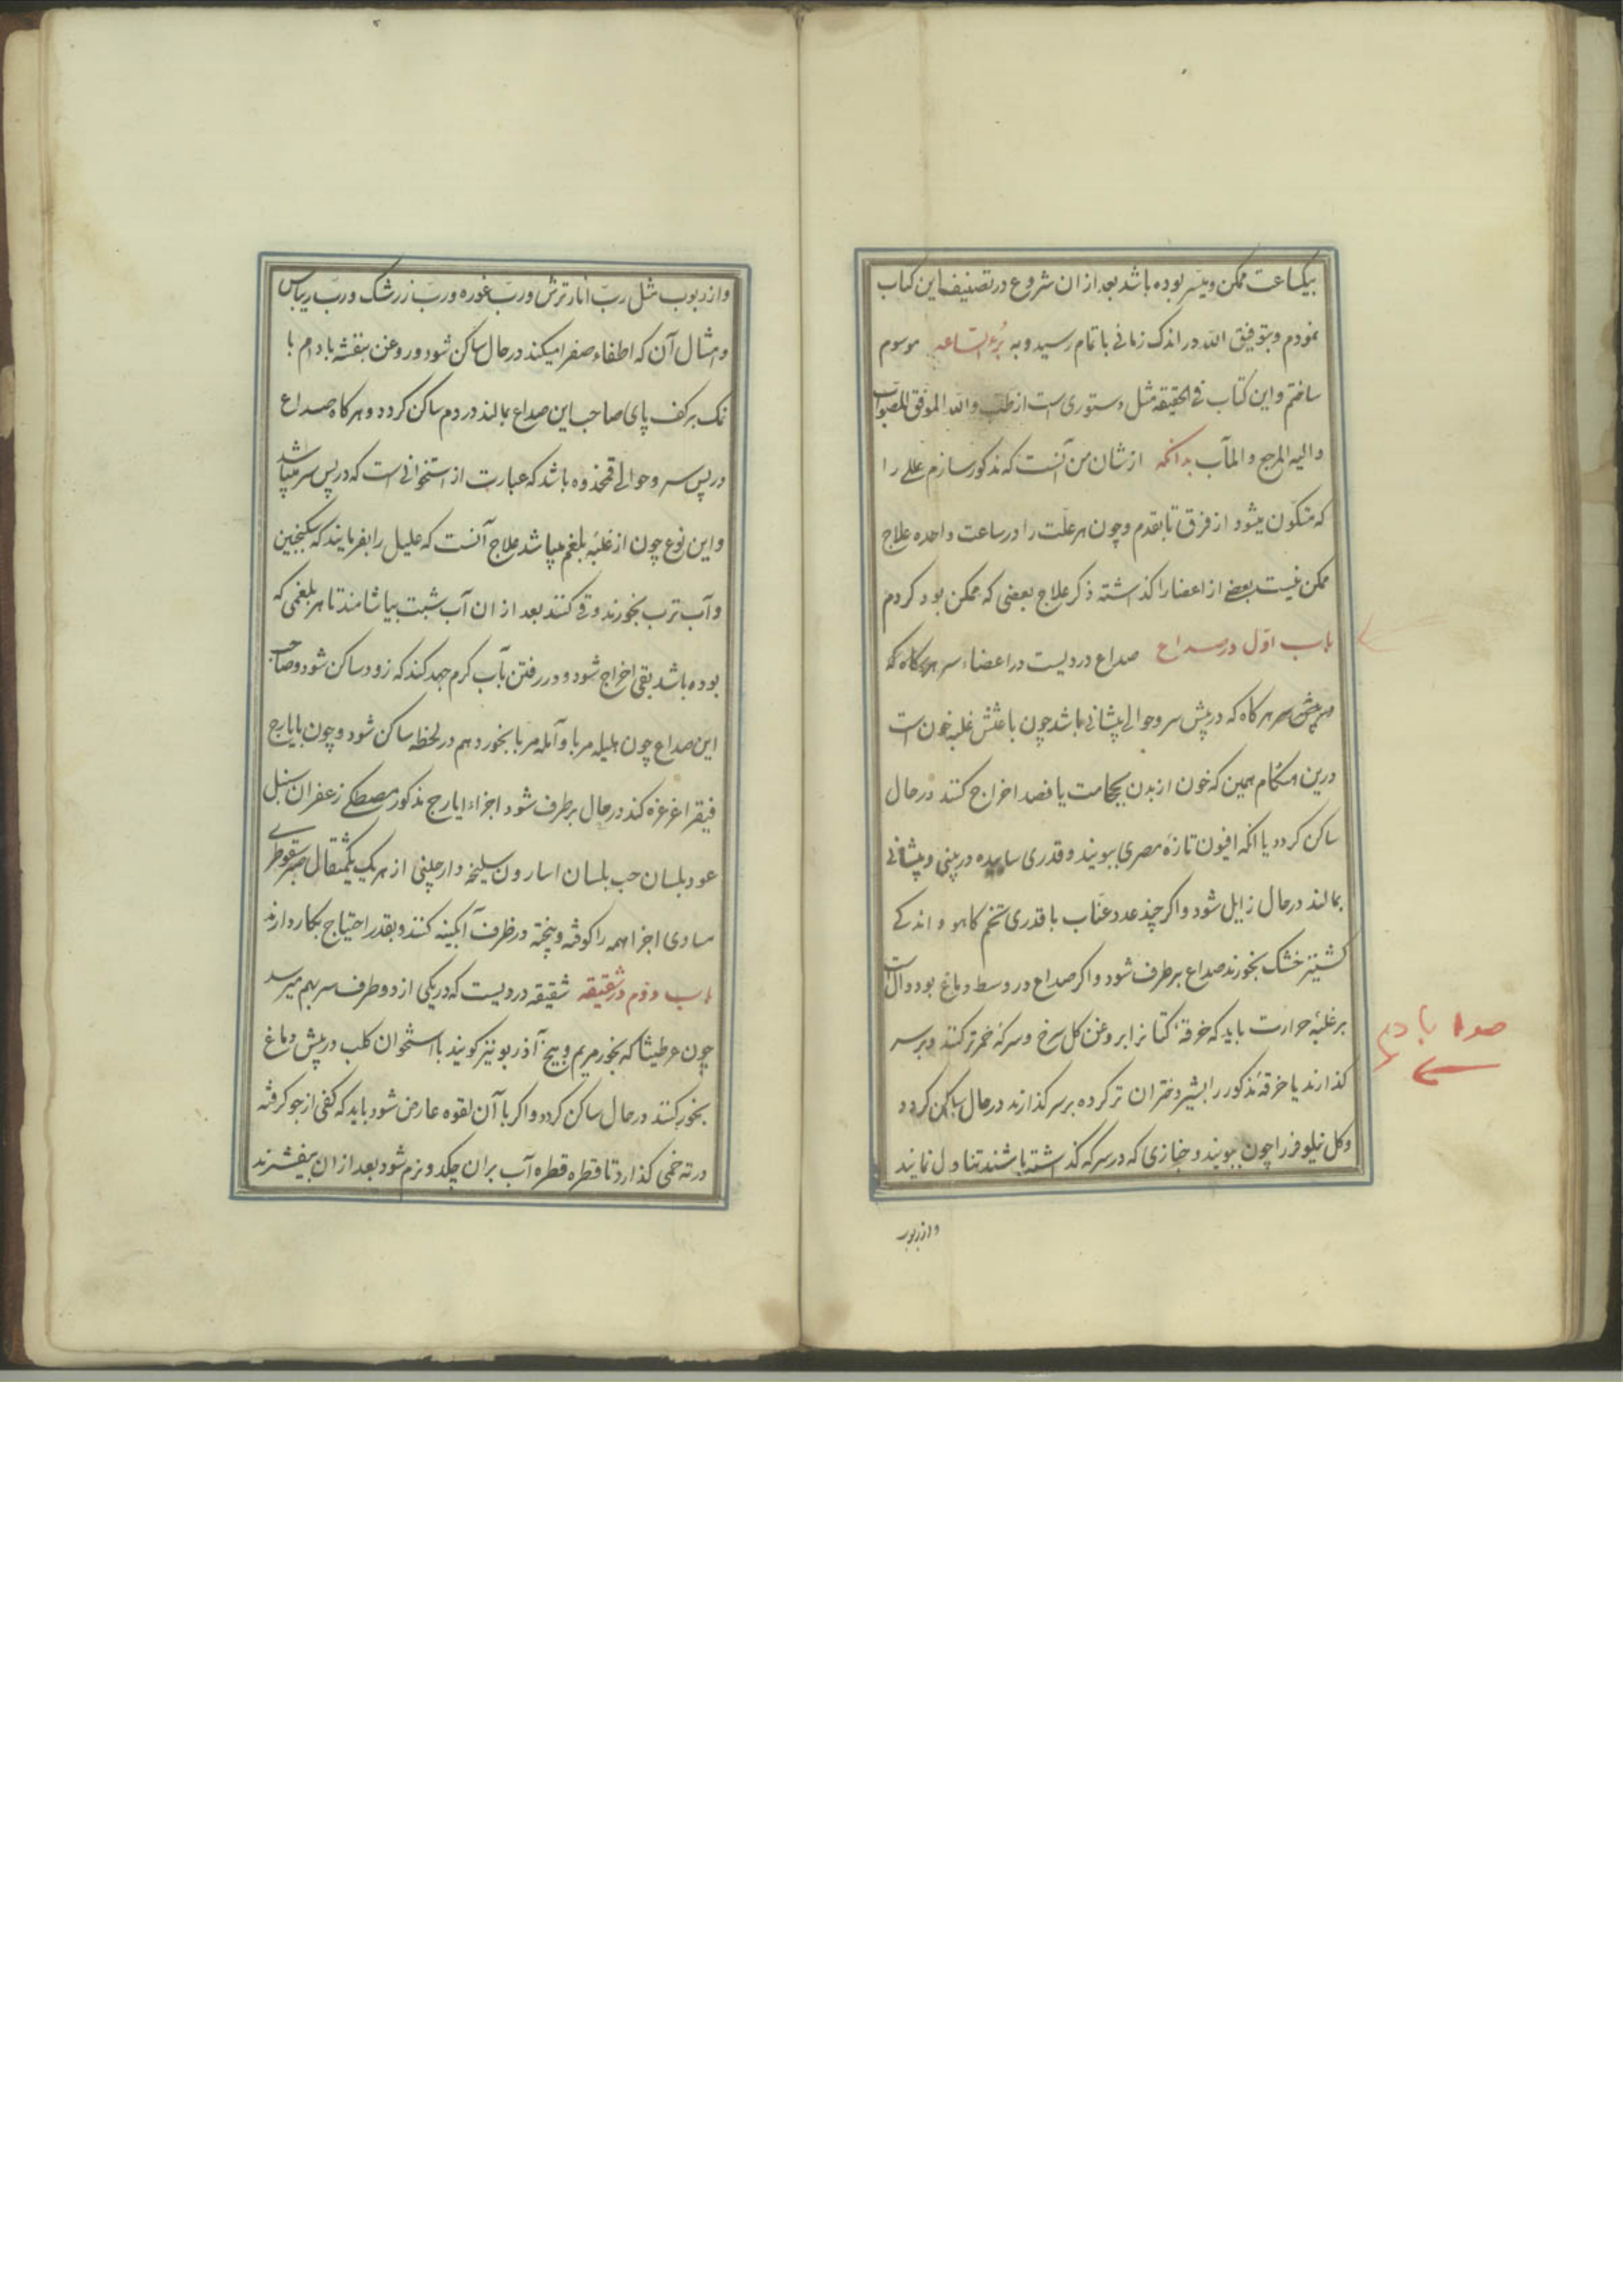 بیکساعت ممکن و میسّر بوده باشد بعد از ان شروع در تصنیف این کتاب
نمودم و بتوفیق الله در اندک زمانی باتمام رسید و به بُرء الساعه موسوم
ساختم و این کتاب فی الحقیقه مثل دستوری است از طب والله الموفق للصواب
والیه المرجع والمآب بدانکه از شان من آنست که مذکور سازم عللی را
که متکوّن میشود از فرق تا بقدم و چون هر علّت را در ساعت واحده علاج
ممکن نیست بعضی از اعضا را کذاشته ذکر علاج بعضی که ممکن بود کردم
باب اوّل در صداع صداع دردیست در اعضاء سر هرکاه که
هرکاه که در پیش سر و حوالی پیشانی باشد چون باعثش غلبه خون است
درین هنکام همین که خون از بدن بحجامت یا فصد اخراج کنند در حال
ساکن کردد یا انکه افیون تازهٔ مصری ببویند و قدری ساییده در بینی و پیشانی
بمالند در حال زایل شود و اکر چند عدد عنّاب با قدری تخم کاهو و اندکی
کشنیز خشک بخورند صداع برطرف شود و اکر صداع در وسط دماغ بود و دال است
بر غلبهٔ حرارت باید که خرقهٔ کتانرا بروغن کل سرخ و سرکه خمر تر کنند و بر سر
کذارند یا خرقهٔ مذکور را بشیر دختران تر کرده بر سر کذارند در حال ساکن کردد
و کل نیلوفر را چون ببویند و خبازی که در سرکه کذاشته باشند تناول نمایند
و از ربوب
و از ربوب مثل ربّ انار ترش و ربّ غوره و ربّ زرشک و ربّ ریباس
و امثال آن که اطفاء صفرا میکند در حال ساکن شود و روغن بنفشه بادام با
نمک بر کف پای صاحب این صداع بمالند در دم ساکن کردد و هرکاه صداع
در پس سر و حوالی قمحذوه باشد که عبارت از استخوانی است که در پس سر میباشد
و این نوع چون از غلبهٔ بلغم میباشد علاج آنست که علیل را بفرمایند که سکنجبین
و آب ترب بخورند و قی کنند بعد از ان آب شبت بیاشامند تا هر بلغمی که
بوده باشد بقی اخراج شود و در رفتن بآب کرم جهد کند که زود ساکن شود و صاحب
این صداع چون هلیله مربا و آمله مربا بخورد هم در لحظه ساکن شود و چون بایارج
فیقرا غرغره کند در حال برطرف شود اجزاء ایارج مذکور مصطکی زعفران سنبل
عود بلسان حب بلسان اسارون سلیخه دارچینی از هر یک یکمثقال صبر سقوطری
مساوی اجزا همه را کوفته و بیخته در ظرف آبکینه کنند و بقدر احتیاج بکار دارند
باب دوّم در شقیقه شقیقه دردیست که در یکی از دو طرف سر بهم میرسد
چون عرطنیثا که بخور مریم و بیخ آذربو نیز کویند با استخوان کلب در پیش دماغ
بخور کنند در حال ساکن کردد و اکر با آن لقوه عارض شود باید که کفی از جو کرفته
در ته خمی کذارد تا قطره قطره آب بران چکد و نرم شود بعد از ان بیفشرند